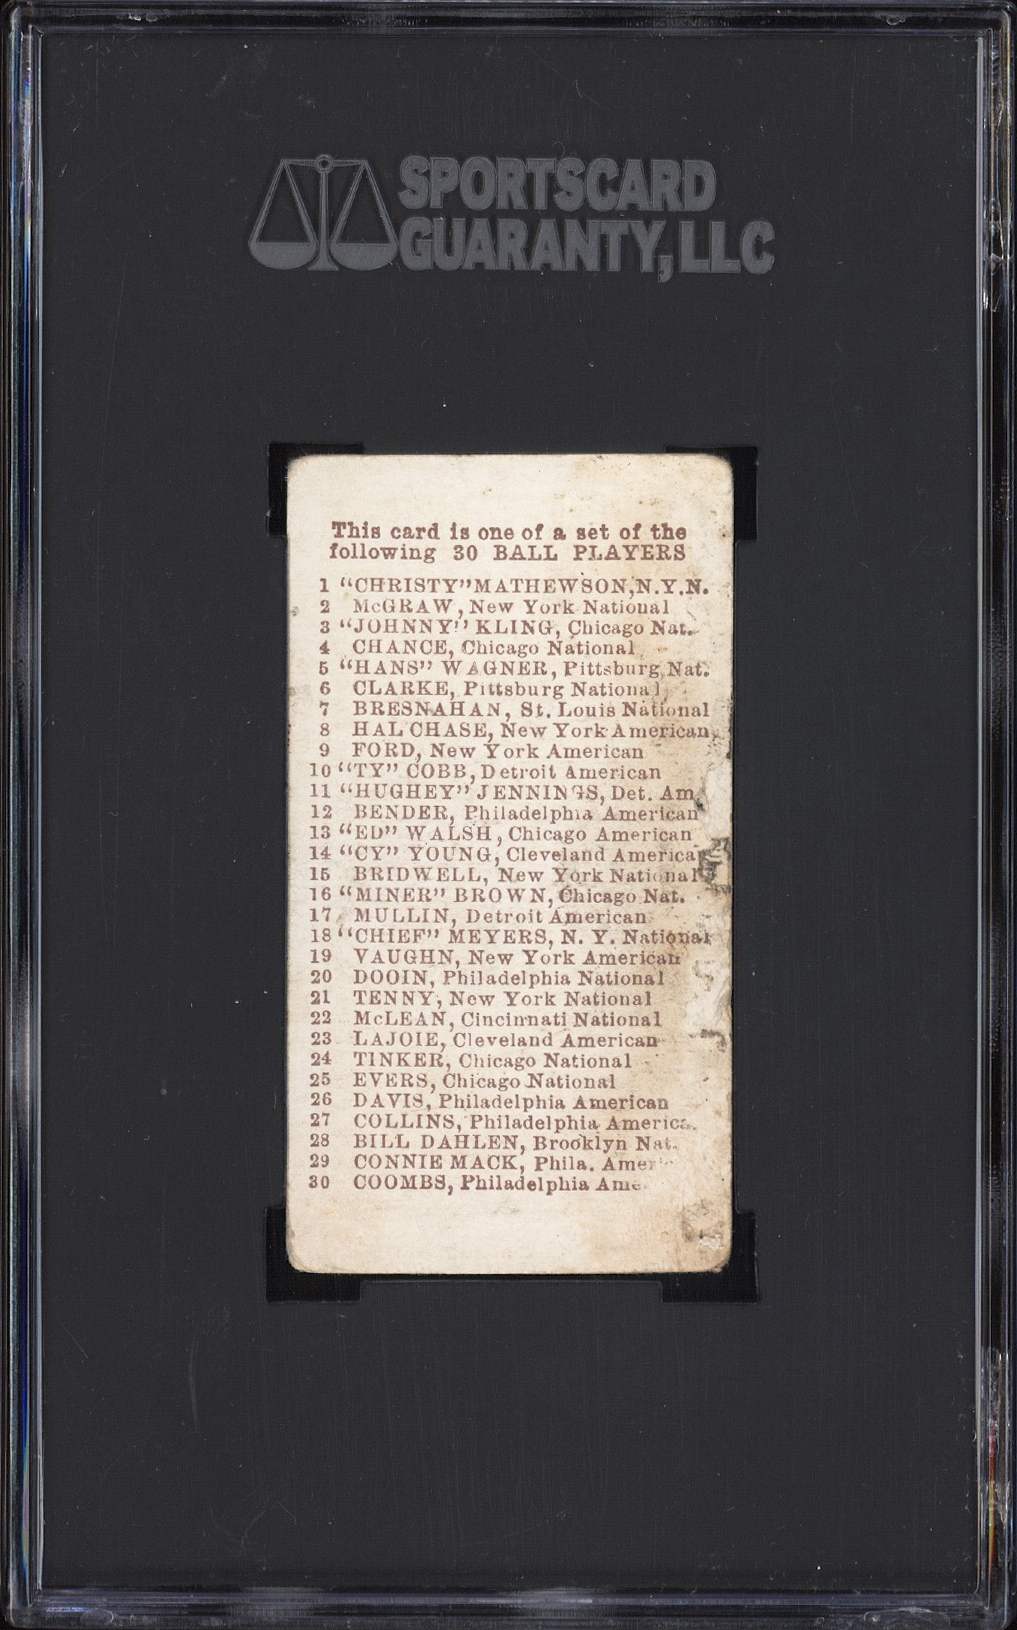 SPORTSCARD
GUARANTY, LLC
This card is one of a set of the
following 30 BALL PLAYERS
1 "CHRISTY" MATHEWSON, N.Y.N.
2 McGRAW, New York National
3 "JOHNNY" KLING, Chicago Nat.
4 CHANCE, Chicago National
5 "HANS" WAGNER, Pittsburg, Nat.
6 CLARKE, Pittsburg National
7 BRESNAHAN, St. Louis National
8 HAL CHASE, New York American
9 FORD, New York American
10 "TY" COBB, Detroit American
11 "HUGHEY" JENNINGS, Det. Am
12 BENDER, Philadelphia American
13 "ED" WALSH, Chicago American
14 "CY" YOUNG, Cleveland America
15 BRIDWELL, New York National
16 "MINER" BROWN, Chicago Nat.
17 MULLIN, Detroit American
18 "CHIEF" MEYERS, N. Y. National
19 VAUGHN, New York American
20 DOOIN, Philadelphia National
21 TENNY, New York National
22 McLEAN, Cincinnati National
23 LAJOIE, Cleveland American
24 TINKER, Chicago National
25 EVERS, Chicago National
26 DAVIS, Philadelphia American
27 COLLINS, Philadelphia America
28 BILL DAHLEN, Brooklyn Nat.
29 CONNIE MACK, Phila. Amer
30 COOMBS, Philadelphia Ame